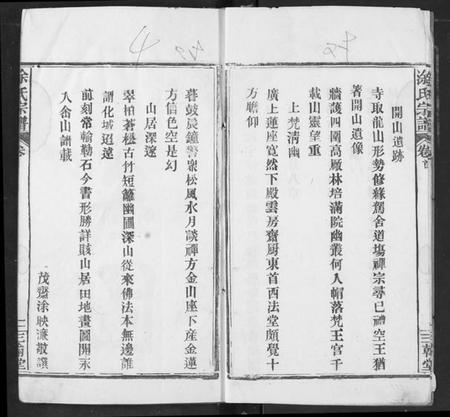 涂氏宗譜
卷首
三翰堂
開山遺跡
寺取龍山形勢修緣剏舍道塲禪宗尋已禮空王猶
著開山遺像
牆護四圍高厰林培滿院幽叢何人帽落梵王宫千
載山靈望重
上梵清幽
廣上蓮座寬然下殿雲房齋厨東首西法堂頗覺十
方瞻仰
暮鼓晨鐘警衆松風水月談禪方金山座下産金蓮
方信色空是幻
山居深邃
翠柏蒼松古竹短籬幽圃深山從來佛法本無邊誰
謂化城迢遞
前刻常輸勒石今書形勝詳賅山居田地畫圖開永
入合山譜載
茂齋涂映濂敬譔
涂氏宗譜
卷
三翰堂